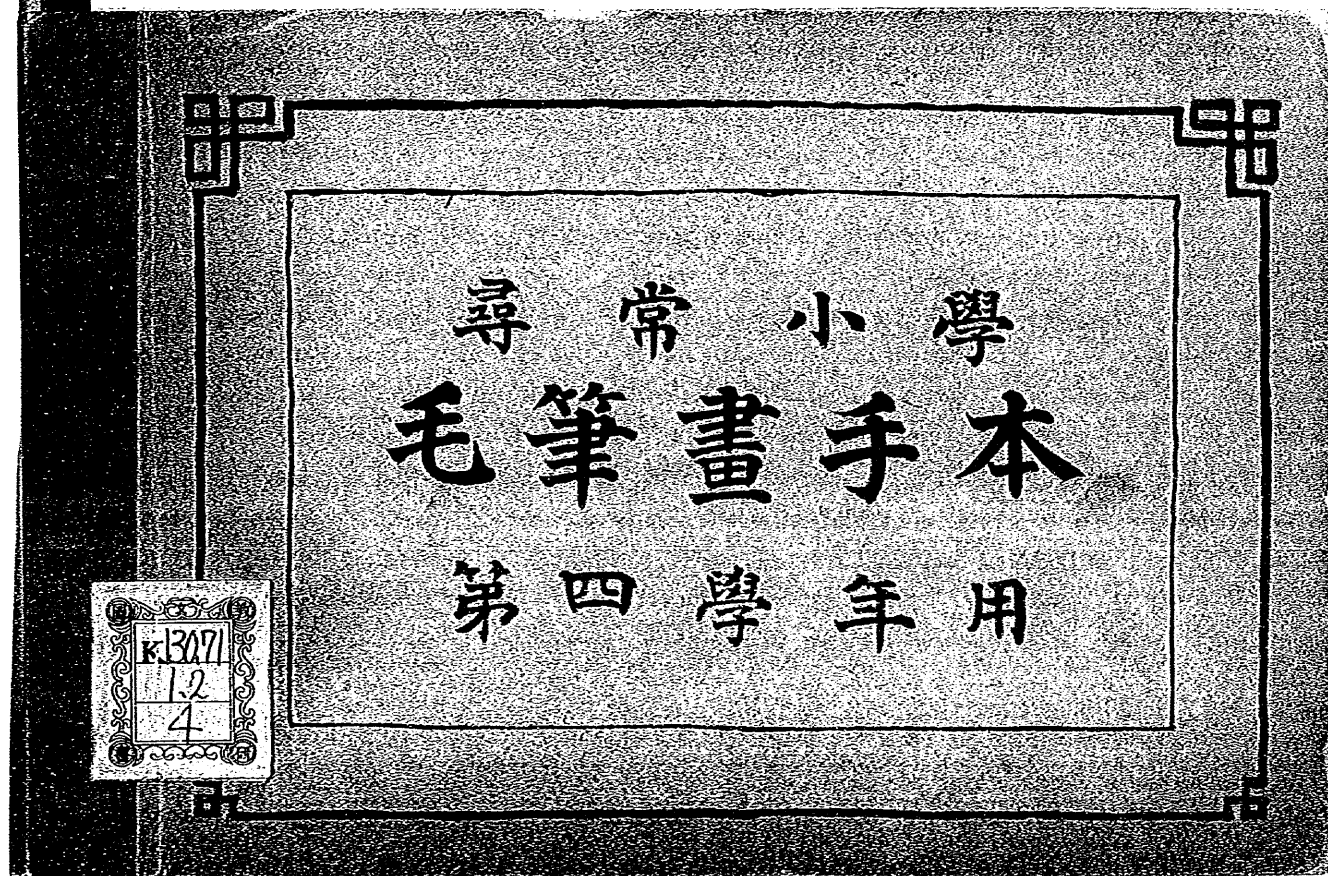 尋常小學
毛筆畫手本
第四學年用
K130.71
1.2
4